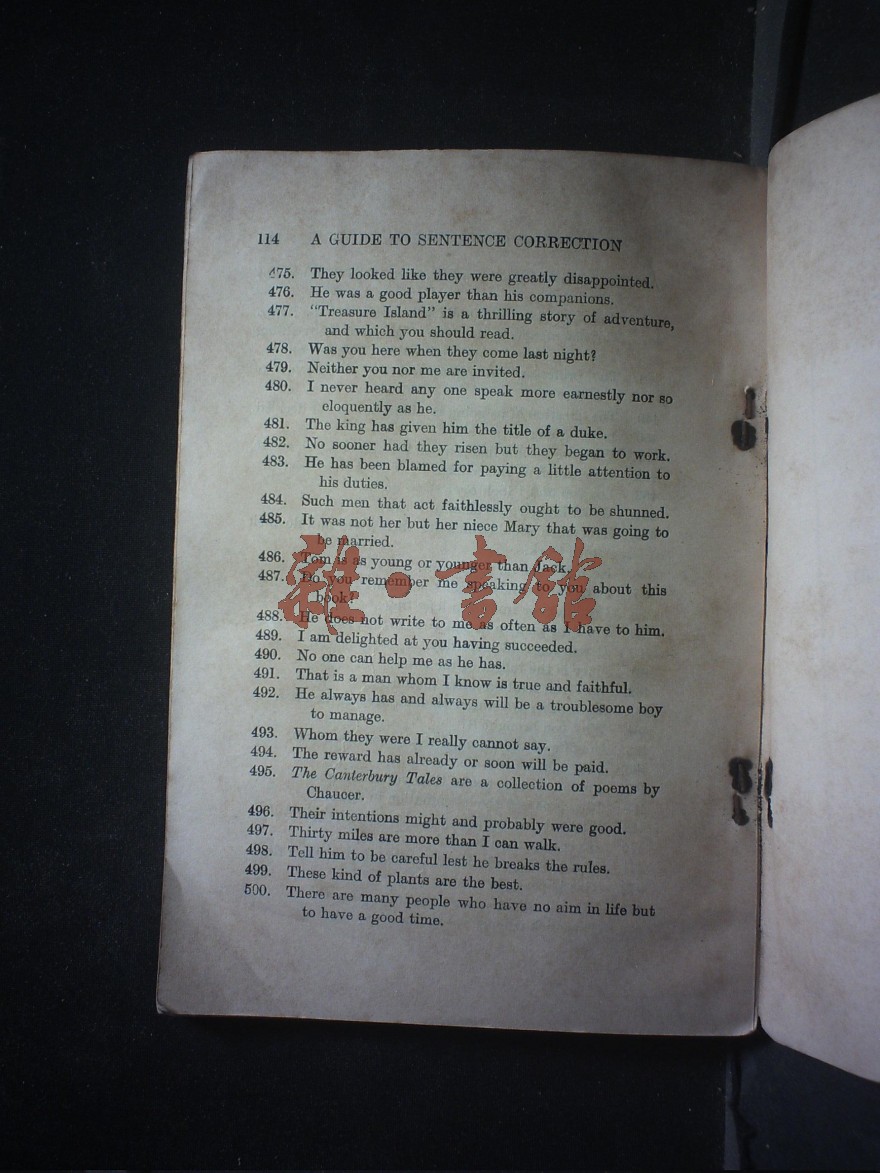 114 A GUIDE TO SENTENCE CORRECTION
475. They looked like they were greatly disappointed.
476. He was a good player than his companions.
477. "Treasure Island" is a thrilling story of adventure,
and which you should read.
478. Was you here when they come last night?
479. Neither you nor me are invited.
480. I never heard any one speak more earnestly nor so
eloquently as he.
481. The king has given him the title of a duke.
482. No sooner had they risen but they began to work.
483. He has been blamed for paying a little attention to
his duties.
484. Such men that act faithlessly ought to be shunned.
485. It was not her but her niece Mary that was going to
be married.
486. Tom is as young or younger than Jack.
487. Do you remember me speaking to you about this
book?
488. He does not write to me as often as I have to him.
489. I am delighted at you having succeeded.
490. No one can help me as he has.
491. That is a man whom I know is true and faithful.
492. He always has and always will be a troublesome boy
to manage.
493. Whom they were I really cannot say.
494. The reward has already or soon will be paid.
495. The Canterbury Tales are a collection of poems by
Chaucer.
496. Their intentions might and probably were good.
497. Thirty miles are more than I can walk.
498. Tell him to be careful lest he breaks the rules.
499. These kind of plants are the best.
500. There are many people who have no aim in life but
to have a good time.
雜·書館